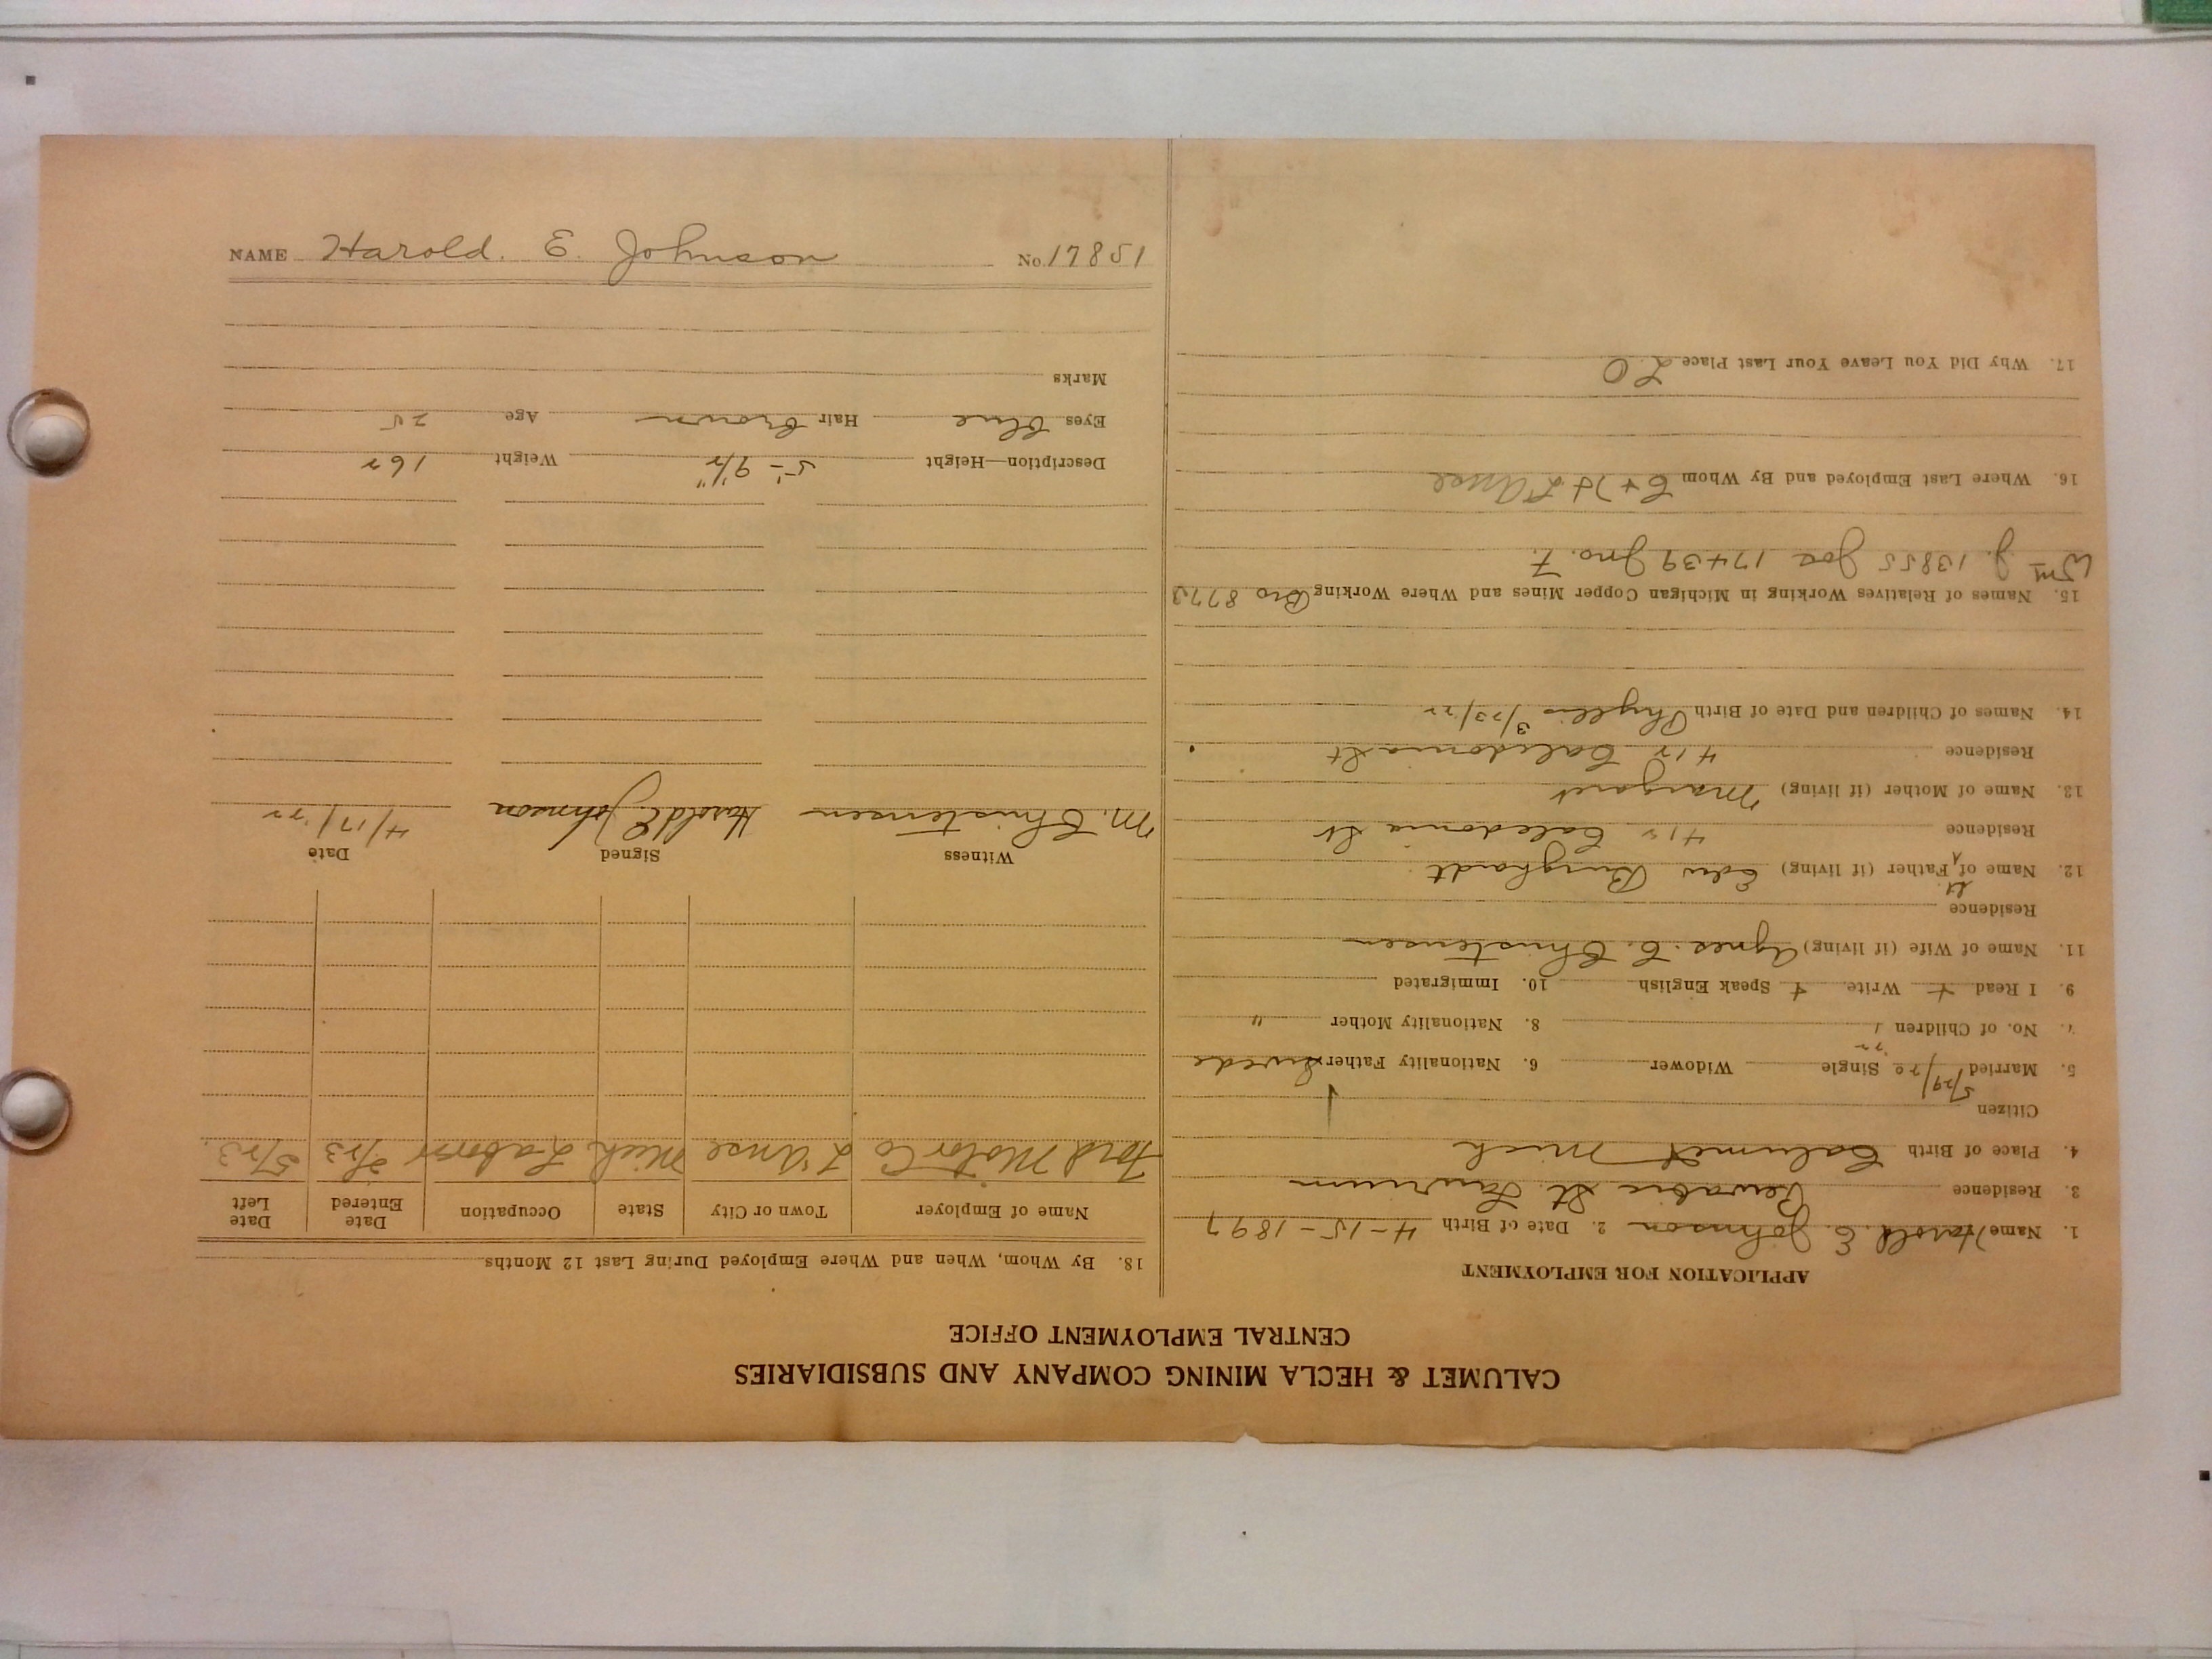 NAME Harold. E. Johnson No. 17851
CALUMET & HECLA MINING COMPANY AND SUBSIDIARIES
CENTRAL EMPLOYMENT OFFICE
APPLICATION FOR EMPLOYMENT
1. Name Harold. E. Johnson 2. Date of Birth 4-15-1897
3. Residence Pewabic St. Laurium
4. Place of Birth Calumet Mich
Citizen
5. Married 5/29/20 Single Widower 6. Nationality Father Swede
No. of Children 1 8. Nationality Mother "
9. I Read + Write + Speak English 10. Immigrated
11. Name of Wife (if living) Agnes. C. Christensen
Residence
12. Name of Father (if living) Edw Burghardt
Residence 412 Caledonia St
13. Name of Mother (if living) Margaret
Residence 412 Caledonia St
14. Names of Children and Date of Birth Phyllis 3/23/22
15. Names of Relatives Working in Michigan Copper Mines and Where Working Bro 8773
Wm J. 13855 Joe 17439 Jno. F.
16. Where Last Employed and By Whom C+H + L'Anse
17. Why Did You Leave Your Last Place LO
18. By Whom, When and Where Employed During Last 12 Months
Name of Employer Town or City State Occupation Date Entered Date Left
Ford Motor Co L'Anse Mich Laborer 2/23 5/23.
Witness Signed Date
M. Christensen Harold E Johnson 4/17/'22
Description—Height 5'-9½" Weight 162
Eyes blue Hair brown Age 25
Marks